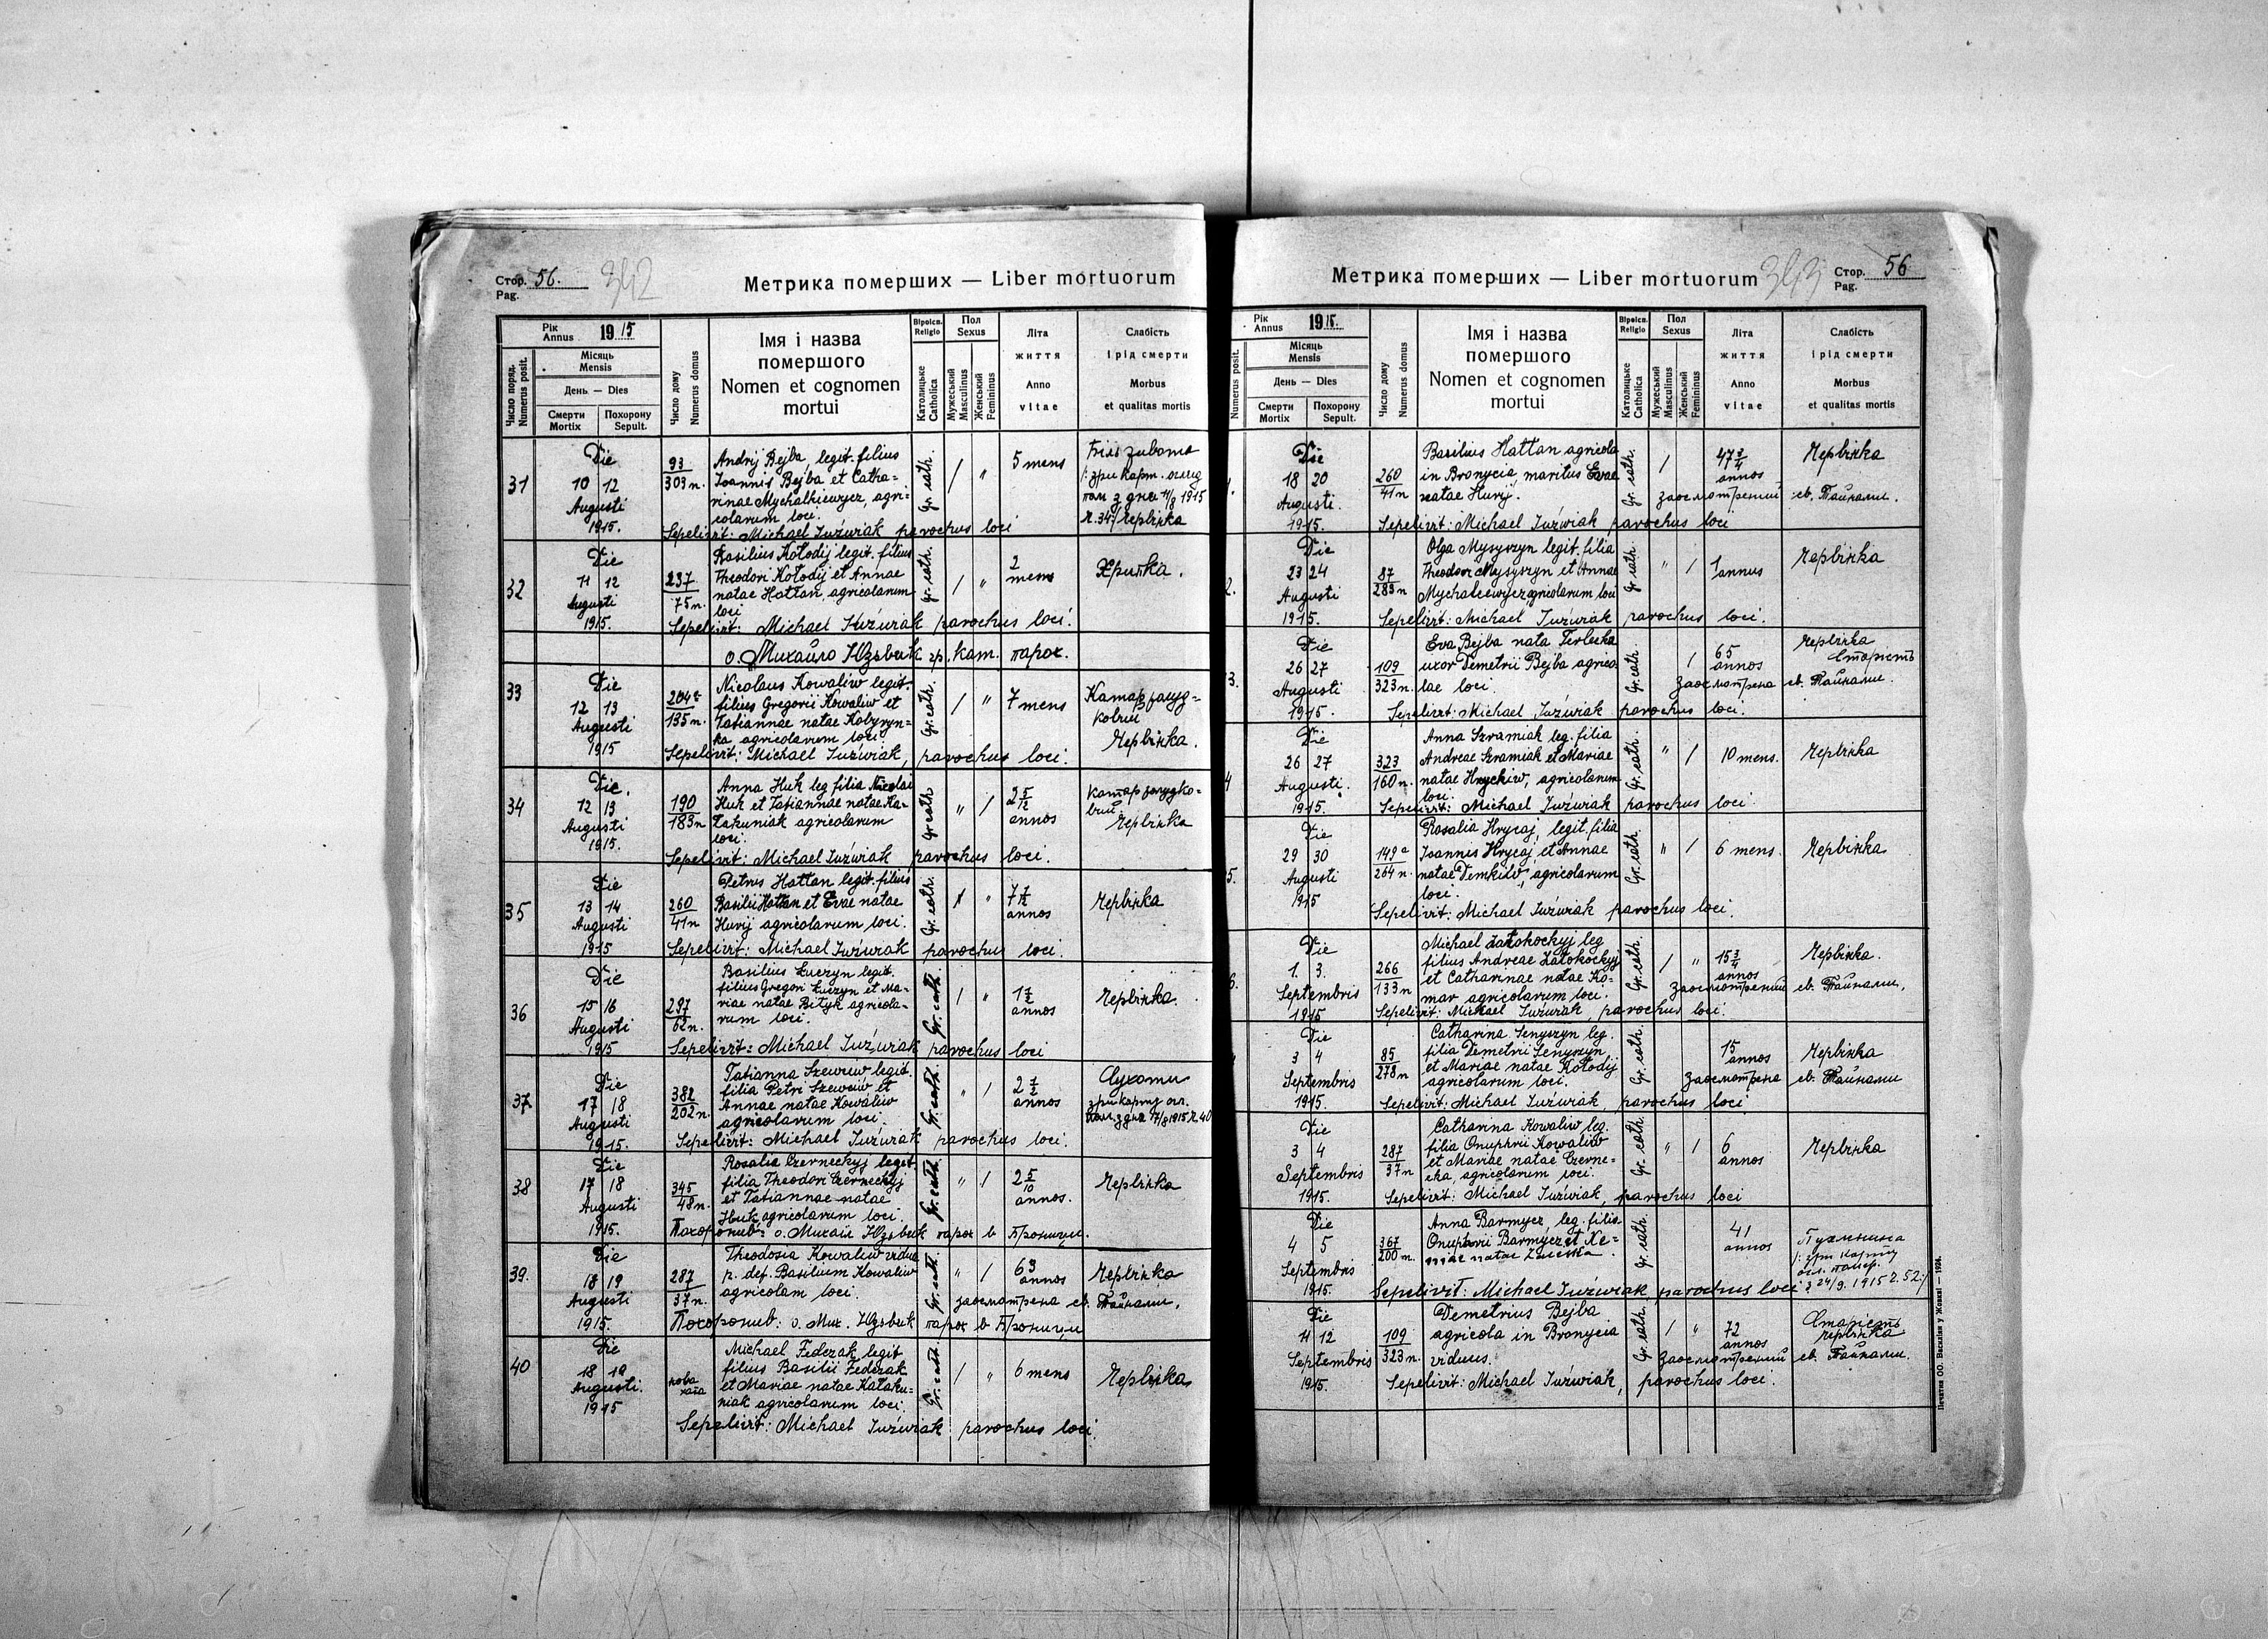 Стор. 56.
Pag.
342
Метрика померших — Liber mortuorum
Рік
Annus 1915
Місяць
Mensis
День — Dies
Смерти
Mortix
Похорону
Sepult.
Число поряд.
Numerus posit.
Число дому
Numerus domus
Імя і назва
помершого
Nomen et cognomen
mortui
Віроісп.
Religio
Католицьке
Catholica
Пол
Sexus
Мужеський
Masculinus
Женський
Femininus
Літа
життя
Anno
vitae
Слабість
і рід смерти
Morbus
et qualitas mortis
31
Die
10 12
Augusti
1915.
93
303 n.
Andrij Bejba, legit. filius
Joannis Bejba et Catha-
rinae Mychalkiewycz, agri-
colarum loci.
Gr. cath.
/ "
5 mens
/: зри карт. огляд
пом з дня 11/8 1915
ч. 34:/ червінка
Sepelivit: Michael Juźwiak parochus loci
32
Die
11 12
Augusti
1915.
237
75 n.
Basilius Kołodij legit. filius
Theodori Kołodij et Annae
natae Hattan, agricolarum
loci
Gr. cath.
/ "
2
mens
Хрипка.
Sepelivit: Michael Juźwiak parochus loci.
о. Михайло Юзьвяк гр. кат. парох.
33
Die
12 13
Augusti
1915
204a
135 n.
Nicolaus Kowaliw legit.
filius Gregorii Kowaliw et
Tatiannae natae Kobyryn-
ka agricolarum loci
Gr. cath.
/ "
7 mens
Катар жолуд-
ковий
Червінка.
Sepelivit: Michael Juźwiak, parochus loci.
34
Die.
12 13
Augusti
1915.
190
183 n
Anna Huk leg filia Nicolai
Huk et Tatiannae natae Ka-
łakuniak agricolarum
loci.
Gr cath
" /
2 5/12
annos
катар жолудко-
вий
Червінка
Sepelivit: Michael Juźwiak parochus loci.
35
Die
13 14
Augusti
1915
260
41 n
Petrus Hattan legit. filius
Basilii Hattan et Evae natae
Huryj agricolarum loci.
Gr. cath.
/ "
annos
Червінка
Sepelivit: Michael Juźwiak parochus loci.
36
Die
15 16
Augusti
1915
297
62 n.
Basilius Łuczyn legit.
filius Gregori Łuczyn et Ma-
riae natae Bityk agricola-
rum loci.
Gr. cath.
/ "
1 1/2
annos
Червінка.
Sepelivit: Michael Juźwiak parochus loci
37
Die
17 18
Augusti
1915.
382
202 n.
Tatianna Szewciw legit.
filia Petri Szewciw et
Annae natae Kowaliw
agricolarum loci.
Gr. cath.
" /
2 1/2
annos
Сухоти
зри карту ог.
пом. з дня 17/8 1915 ч. 40
Sepelivit: Michael Juźwiak parochus loci.
38
Die
17 18
Augusti
1915.
345
48 n.
Rosalia Czerneckyj legit
filia Theodori Czerneckyj
et Tatiannae natae
Huk agricolarum loci.
Gr. cath.
" /
2 5/10
annos.
Червінка
Похоронив: о. Михаил Юзьвяк парох в Броници.
39.
Die
18 19
Augusti
1915.
287
37 n.
Theodosia Kowaliw vidua
p. def. Basilium Kowaliw
agricolam loci.
Gr. cath.
" /
63
annos
Червінка
заосмотрена св. Тайнами.
Похоронив: о. Мих. Юзьвяк парох в Броници
40
Die
18 19
Augusti.
1915
нова
хата
Michael Fedczak legit
filius Basilii Fedczak
et Mariae natae Kałaku-
niak agricolarum loci.
Gr. cath.
/ "
6 mens
Червінка
Sepelivit: Michael Juźwiak parochus loci.
Метрика померших — Liber mortuorum
343
Стор. 56
Pag.
Рік
Annus 1915.
Місяць
Mensis
День — Dies
Смерти
Mortix
Похорону
Sepult.
Numerus posit.
Число дому
Numerus domus
Імя і назва
помершого
Nomen et cognomen
mortui
Віроісп.
Religio
Католицьке
Catholica
Пол
Sexus
Мужеський
Masculinus
Женський
Femininus
Літа
життя
Anno
vitae
Слабість
і рід смерти
Morbus
et qualitas mortis
1.
Die
18 20
Augusti.
1915.
260
41 n
Basilius Hattan agricola
in Bronycia, maritus Evae
natae Huryj.
Gr. cath.
/
47 3/4
annos
Червінка
заосмотрений св. Тайнами.
Sepelivit: Michael Juźwiak parochus loci
2.
Die
23 24
Augusti
1915.
87
283 n
Olga Mysyszyn legit. filia
Theodori Mysyszyn et Annae
Mychalcewycz agricolarum loci
Gr. cath.
" /
1 annus
Червінка
Sepelivit: Michael Juźwiak parochus loci.
3.
Die
26 27
Augusti
1915.
109
323 n.
Eva Bejba nata Terlecka
uxor Demetrii Bejba agrico
lae loci.
Gr. cath
/
65
annos
Червінка
Старість
Заосмотрена св. Тайнами.
Sepelivit: Michael Juźwiak parochus loci.
4
Die
26 27
Augusti.
1915.
323
160 n.
Anna Szramiak leg. filia
Andreae Szramiak et Mariae
natae Hryckiw, agricolarum
loci.
Gr. cath.
" /
10 mens.
Червінка
Sepelivit: Michael Juźwiak parochus loci.
5.
Die
29 30
Augusti
1915
149a
264 n.
Rosalia Hrycaj, legit. filia
Joannis Hrycaj et Annae
natae Demkiw, agricolarum
loci.
Gr. cath.
" /
6 mens.
Червінка
Sepelivit: Michael Juźwiak parochus loci.
6.
Die
1. 3.
Septembris
1915
266
133 n
Michael Zatokockyj leg
filius Andreae Zatokockyj
et Catharinae natae Ko-
mar agricolarum loci.
Gr. cath.
/ "
15 3/4
annos
Червінка.
Заосмотрений св. Тайнами.
Sepelivit: Michael Juźwiak, parochus loci.
Die
3 4
Septembris
1915.
85
278 n
Catharina Senyszyn leg.
filia Demetrii Senyszyn
et Mariae natae Kołodij
agricolarum loci.
Gr. cath.
15
annos
Червінка
Заосмотрена св. Тайнами
Sepelivit: Michael Juźwiak, parochus loci
Die
3 4
Septembris
1915.
287
37 n
Catharina Kowaliw leg.
filia Onuphrii Kowaliw
et Mariae natae Czerne-
cka, agricolarum loci.
Gr. cath.
" /
6
annos
Червінка
Sepelivit: Michael Juźwiak, parochus loci
Die
4 5
Septembris
1915.
367
200 n.
Anna Barmycz, leg. filia
Onuphrii Barmycz et Xe-
niae natae
Gr. cath.
41
annos
Пухлина
/: зри карту
огл. помер.
з 24/9. 1915 ч. 52:/
Sepelivit: Michael Juźwiak, parochus loci
Die
11 12
Septembris
1915.
109
323 n.
Demetrius Bejba
agricola in Bronycia
viduus.
Gr. cath.
/ "
72
annos
Старість
червінка
Заосмотрений св. Тайнами.
Sepelivit: Michael Juźwiak, parochus loci.
Печатня ОО. Василіян у Жовкві — 1934.